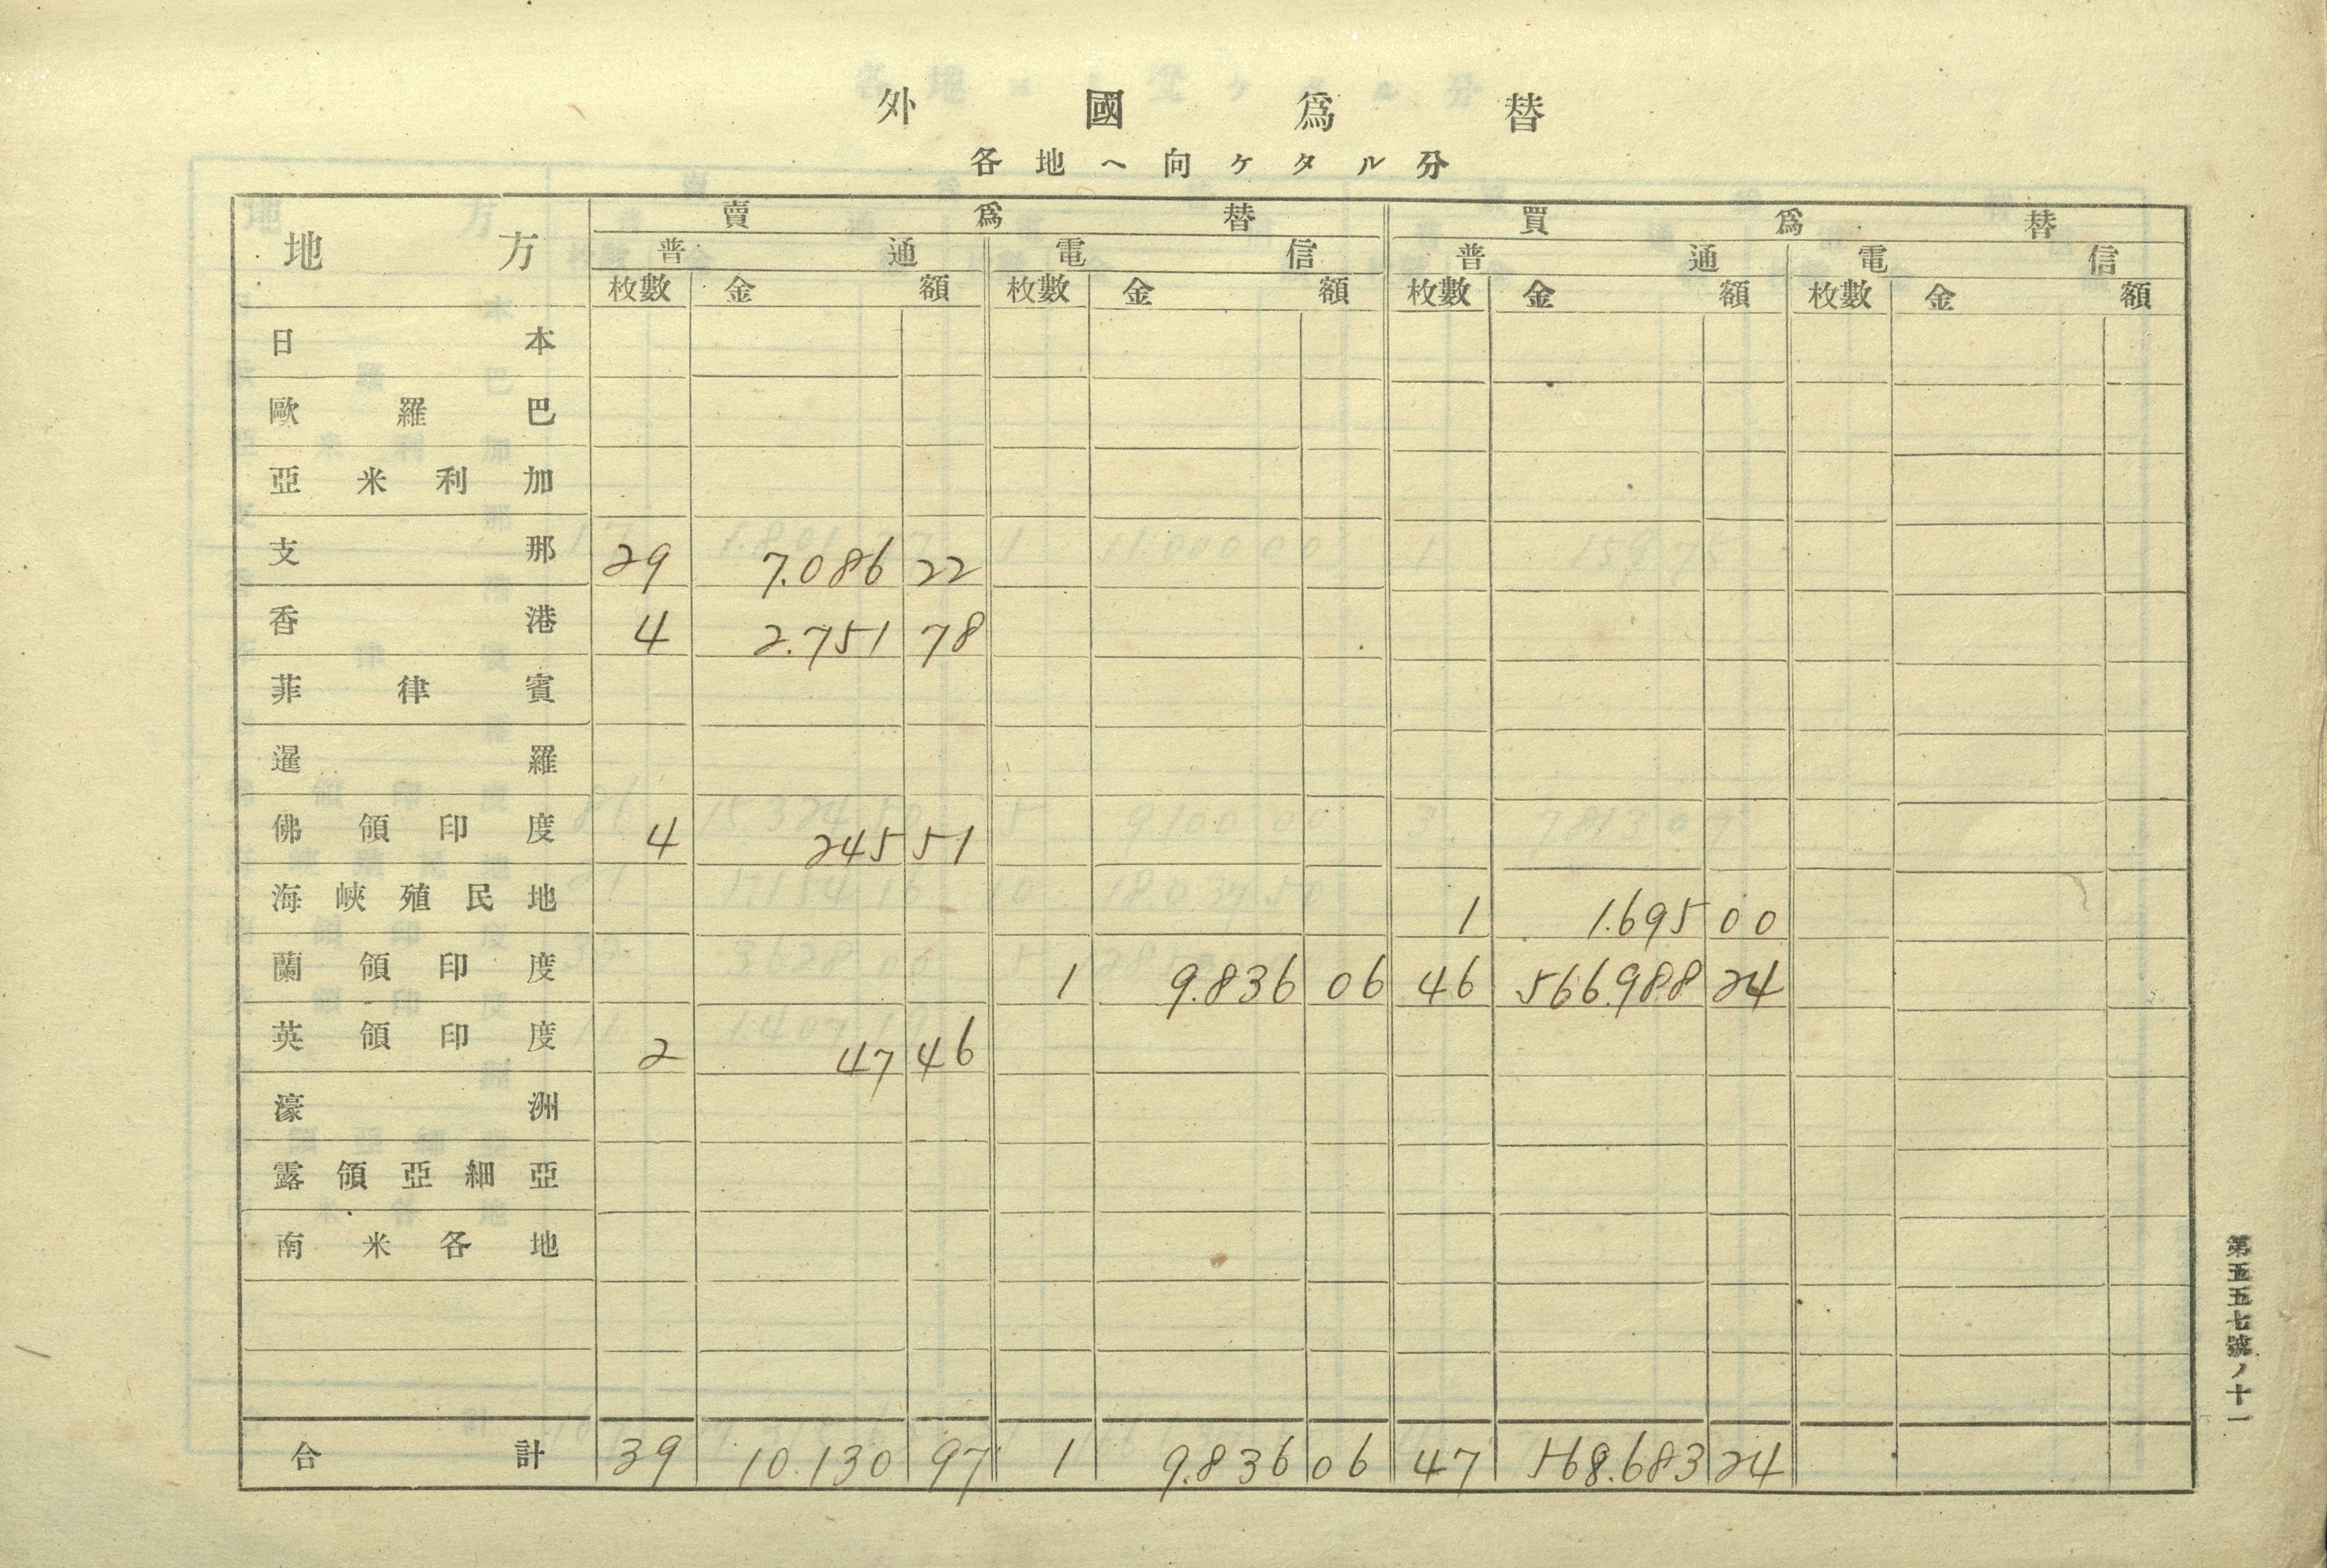 外國爲替
各地ヘ向ケタル分
地方 賣爲替 買爲替
普通 電信 普通 電信
枚數 金額 枚數 金額 枚數 金額 枚數 金額
日本
歐羅巴
亞米利加
支那 29 7.086 22
香港 4 2.751 78
菲律賓
暹羅
佛領印度 4 245 51
海峽殖民地 1 1.695 00
蘭領印度 1 9.836 06 46 566.988 24
英領印度 2 47 46
濠洲
露領亞細亞
南米各地
合計 39 10.130 97 1 9.836 06 47 568.683 24
第五五七號ノ十一